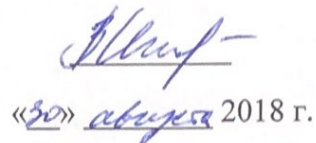 «30» августа 2018 г.